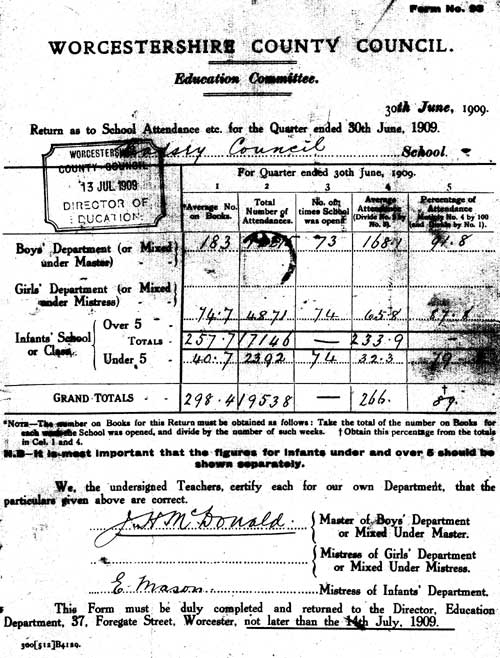 Form No. 93
WORCESTERSHIRE COUNTY COUNCIL.
Education Committee.
30th June, 1909.
Return as to School Attendance etc. for the Quarter ended 30th June, 1909.
Council School.
WORCESTERSHIRE
COUNTY COUNCIL
13 JUL 1909
DIRECTOR OF
EDUCATION
For Quarter ended 30th June, 1909.
1 2 3 4 5
*Average No. on Books. Total Number of Attendances. No. of times School was open. Average Attendance (Divide No. 2 by No. 3). Percentage of Attendance Multiply No. 4 by 100 (and Divide by No. 1).
Boys' Department (or Mixed under Master) 183 73 168.1 91.8
Girls' Department (or Mixed under Mistress)
Infants' School or Class Over 5 74.7 4871 74 65.8 87.8
TOTALS 257.7 17146 — 233.9
Under 5 40.7 2392 74 32.3 79
GRAND TOTALS 298.4 19538 — 266. † 89.
*NOTE—The number on Books for this Return must be obtained as follows: Take the total of the number on Books for
each week the School was opened, and divide by the number of such weeks. † Obtain this percentage from the totals
in Col. 1 and 4.
N.B—It is most important that the figures for infants under and over 5 should be
shown separately.
We, the undersigned Teachers, certify each for our own Department, that the
particulars given above are correct.
J. H McDonald. Master of Boys' Department
or Mixed Under Master.
Mistress of Girls' Department
or Mixed Under Mistress.
E. Mason. Mistress of Infants' Department.
This Form must be duly completed and returned to the Director, Education
Department, 37, Foregate Street, Worcester, not later than the 14th July, 1909.
300[512]B4129.